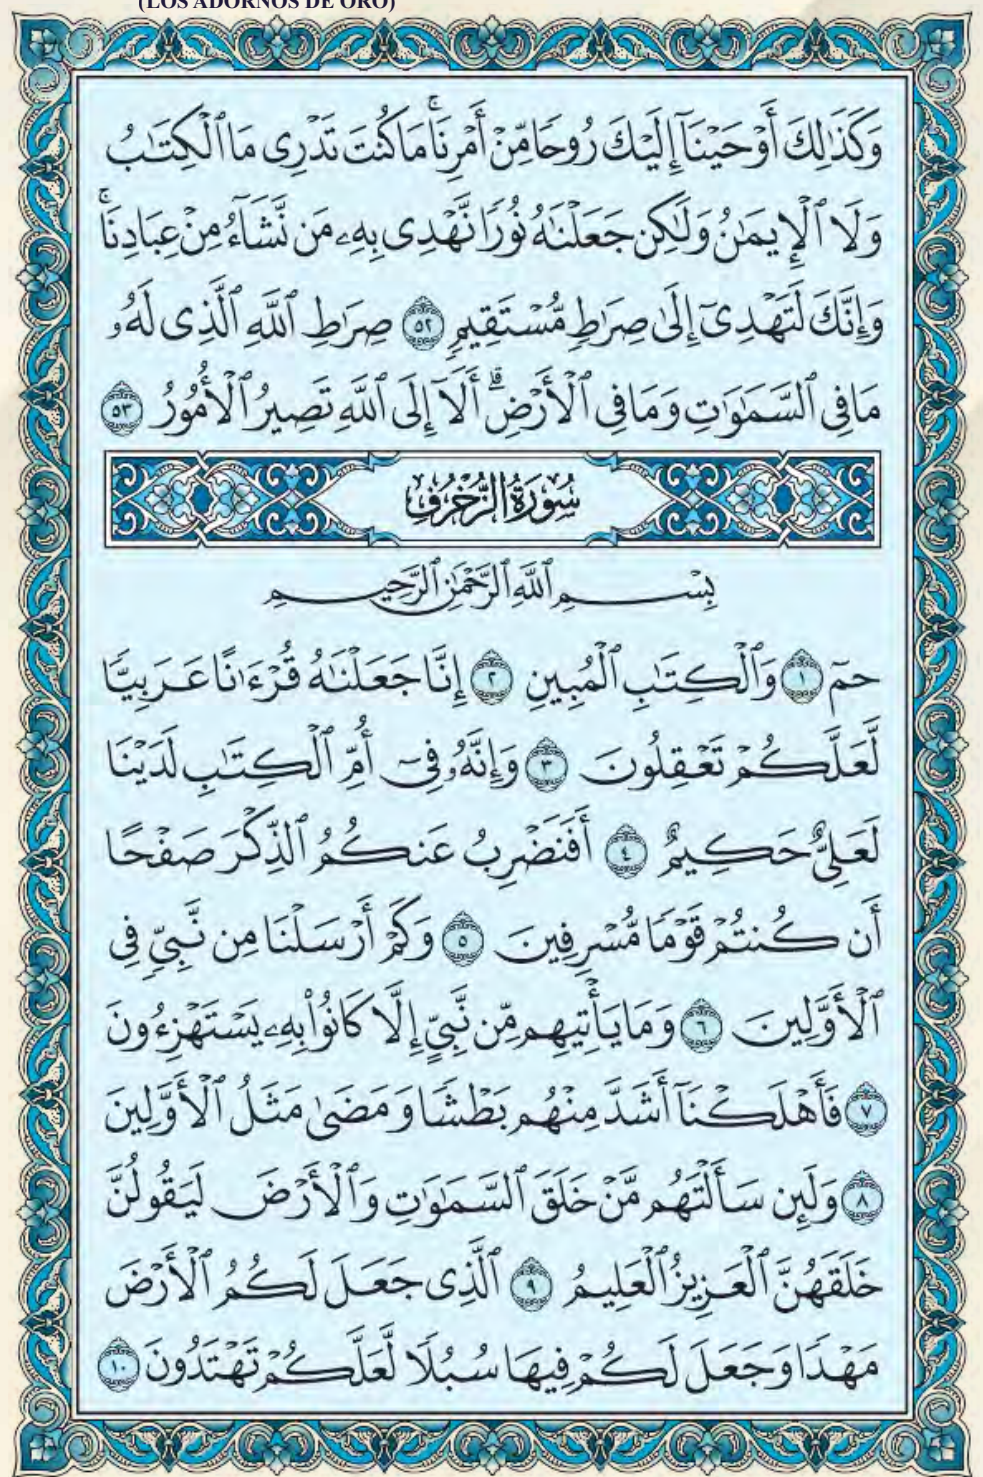 (LOS ADORNOS DE ORO)
وَكَذَٰلِكَ أَوْحَيْنَآ إِلَيْكَ رُوحًا مِّنْ أَمْرِنَا ۚ مَا كُنتَ تَدْرِى مَا ٱلْكِتَـٰبُ
وَلَا ٱلْإِيمَـٰنُ وَلَـٰكِن جَعَلْنَـٰهُ نُورًا نَّهْدِى بِهِۦ مَن نَّشَآءُ مِنْ عِبَادِنَا ۚ
وَإِنَّكَ لَتَهْدِىٓ إِلَىٰ صِرَٰطٍ مُّسْتَقِيمٍ ٥٢ صِرَٰطِ ٱللَّهِ ٱلَّذِى لَهُۥ
مَا فِى ٱلسَّمَـٰوَٰتِ وَمَا فِى ٱلْأَرْضِ ۗ أَلَآ إِلَى ٱللَّهِ تَصِيرُ ٱلْأُمُورُ ٥٣
سُورَةُ الزُّخْرُفِ
بِسْمِ ٱللَّهِ ٱلرَّحْمَـٰنِ ٱلرَّحِيمِ
حمٓ ١ وَٱلْكِتَـٰبِ ٱلْمُبِينِ ٢ إِنَّا جَعَلْنَـٰهُ قُرْءَٰنًا عَرَبِيًّا
لَّعَلَّكُمْ تَعْقِلُونَ ٣ وَإِنَّهُۥ فِىٓ أُمِّ ٱلْكِتَـٰبِ لَدَيْنَا
لَعَلِىٌّ حَكِيمٌ ٤ أَفَنَضْرِبُ عَنكُمُ ٱلذِّكْرَ صَفْحًا
أَن كُنتُمْ قَوْمًا مُّسْرِفِينَ ٥ وَكَمْ أَرْسَلْنَا مِن نَّبِىٍّ فِى
ٱلْأَوَّلِينَ ٦ وَمَا يَأْتِيهِم مِّن نَّبِىٍّ إِلَّا كَانُوا۟ بِهِۦ يَسْتَهْزِءُونَ
٧ فَأَهْلَكْنَآ أَشَدَّ مِنْهُم بَطْشًا وَمَضَىٰ مَثَلُ ٱلْأَوَّلِينَ
٨ وَلَئِن سَأَلْتَهُم مَّنْ خَلَقَ ٱلسَّمَـٰوَٰتِ وَٱلْأَرْضَ لَيَقُولُنَّ
خَلَقَهُنَّ ٱلْعَزِيزُ ٱلْعَلِيمُ ٩ ٱلَّذِى جَعَلَ لَكُمُ ٱلْأَرْضَ
مَهْدًا وَجَعَلَ لَكُمْ فِيهَا سُبُلًا لَّعَلَّكُمْ تَهْتَدُونَ ١٠